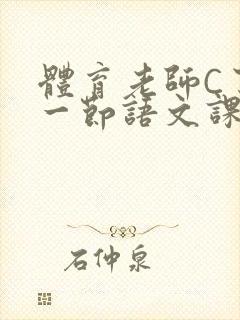 體育老師C
一節語文課
石仲泉